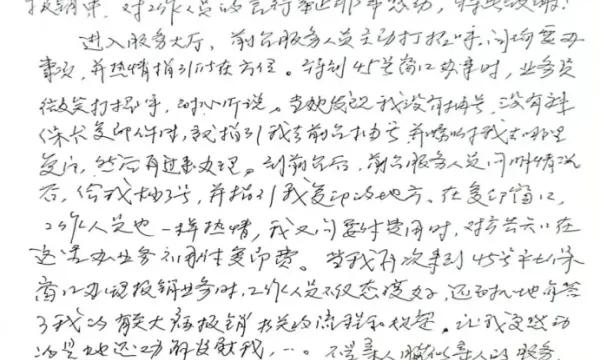 报销中，对工作人员的言行举止非常感动，特表致谢！
进入服务大厅，前台服务人员主动打招呼，问询要办
事项，并热情指引所在方位。待到45号窗口办事时，业务员
微笑打招呼，耐心听说。当她发现我没有抽号，没有主
保卡复印件时，就指引我去前台抽号并嘱咐我去哪里
复印，然后再过来办理。到前台后，前台服务人员问明情况
后，给我抽了号，并指引我复印的地方。在复印窗口，
工作人员也一样热情，我又问要付费用时，对方告知在
这里办业务不用付复印费。当我再次来到45号社保
窗口办理报销业务时，工作人员不仅态度好，还耐心地解答
了我的有关大病报销相关的流程和政策。让我更感动
的是她还功解我，…。不是亲人胜似亲人的服务，